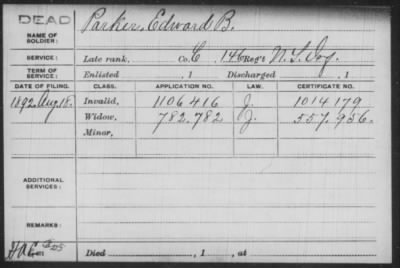 DEAD
NAME OF SOLDIER: Parker, Edward B.
SERVICE: Late rank, Co. C, 146 Reg't N.Y. Inf.
TERM OF SERVICE: Enlisted , 1 Discharged , 1
DATE OF FILING. CLASS. APPLICATION NO. LAW. CERTIFICATE NO.
1892 Aug. 18. Invalid, 1106416 J. 1014179
Widow, 782.782 J. 557.956.
Minor,
ADDITIONAL SERVICES:
REMARKS:
Died , 1 , at